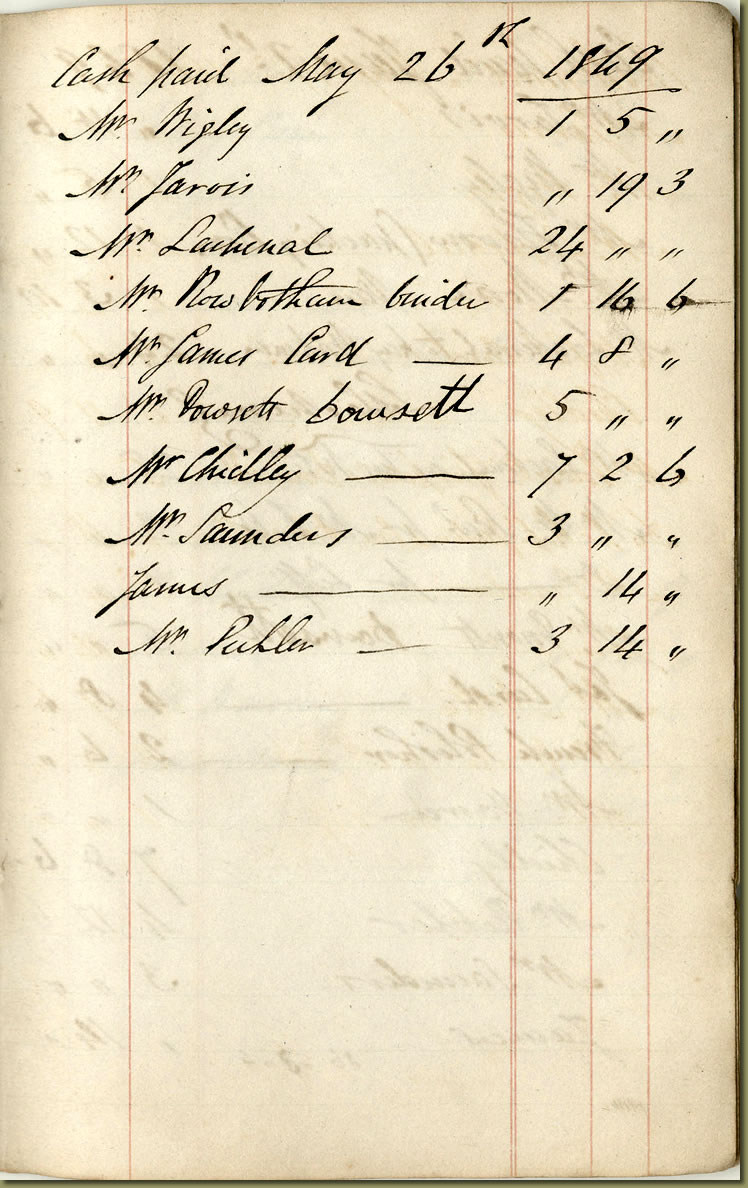 Cash paid May 26th 1849
Mr. Wigley 1 5 "
Mr. Jarvis " 19 3
Mr. Lachenal 24 " "
Mr. Rowbotham binder 1 16 6
Mr. James Card — 4 8 "
Mr. Dowsett bowsett 5 " "
Mr Chidley — 7 2 6
Mr. Saunders — 3 " "
James — " 14 "
Mr. Pichler — 3 14 "